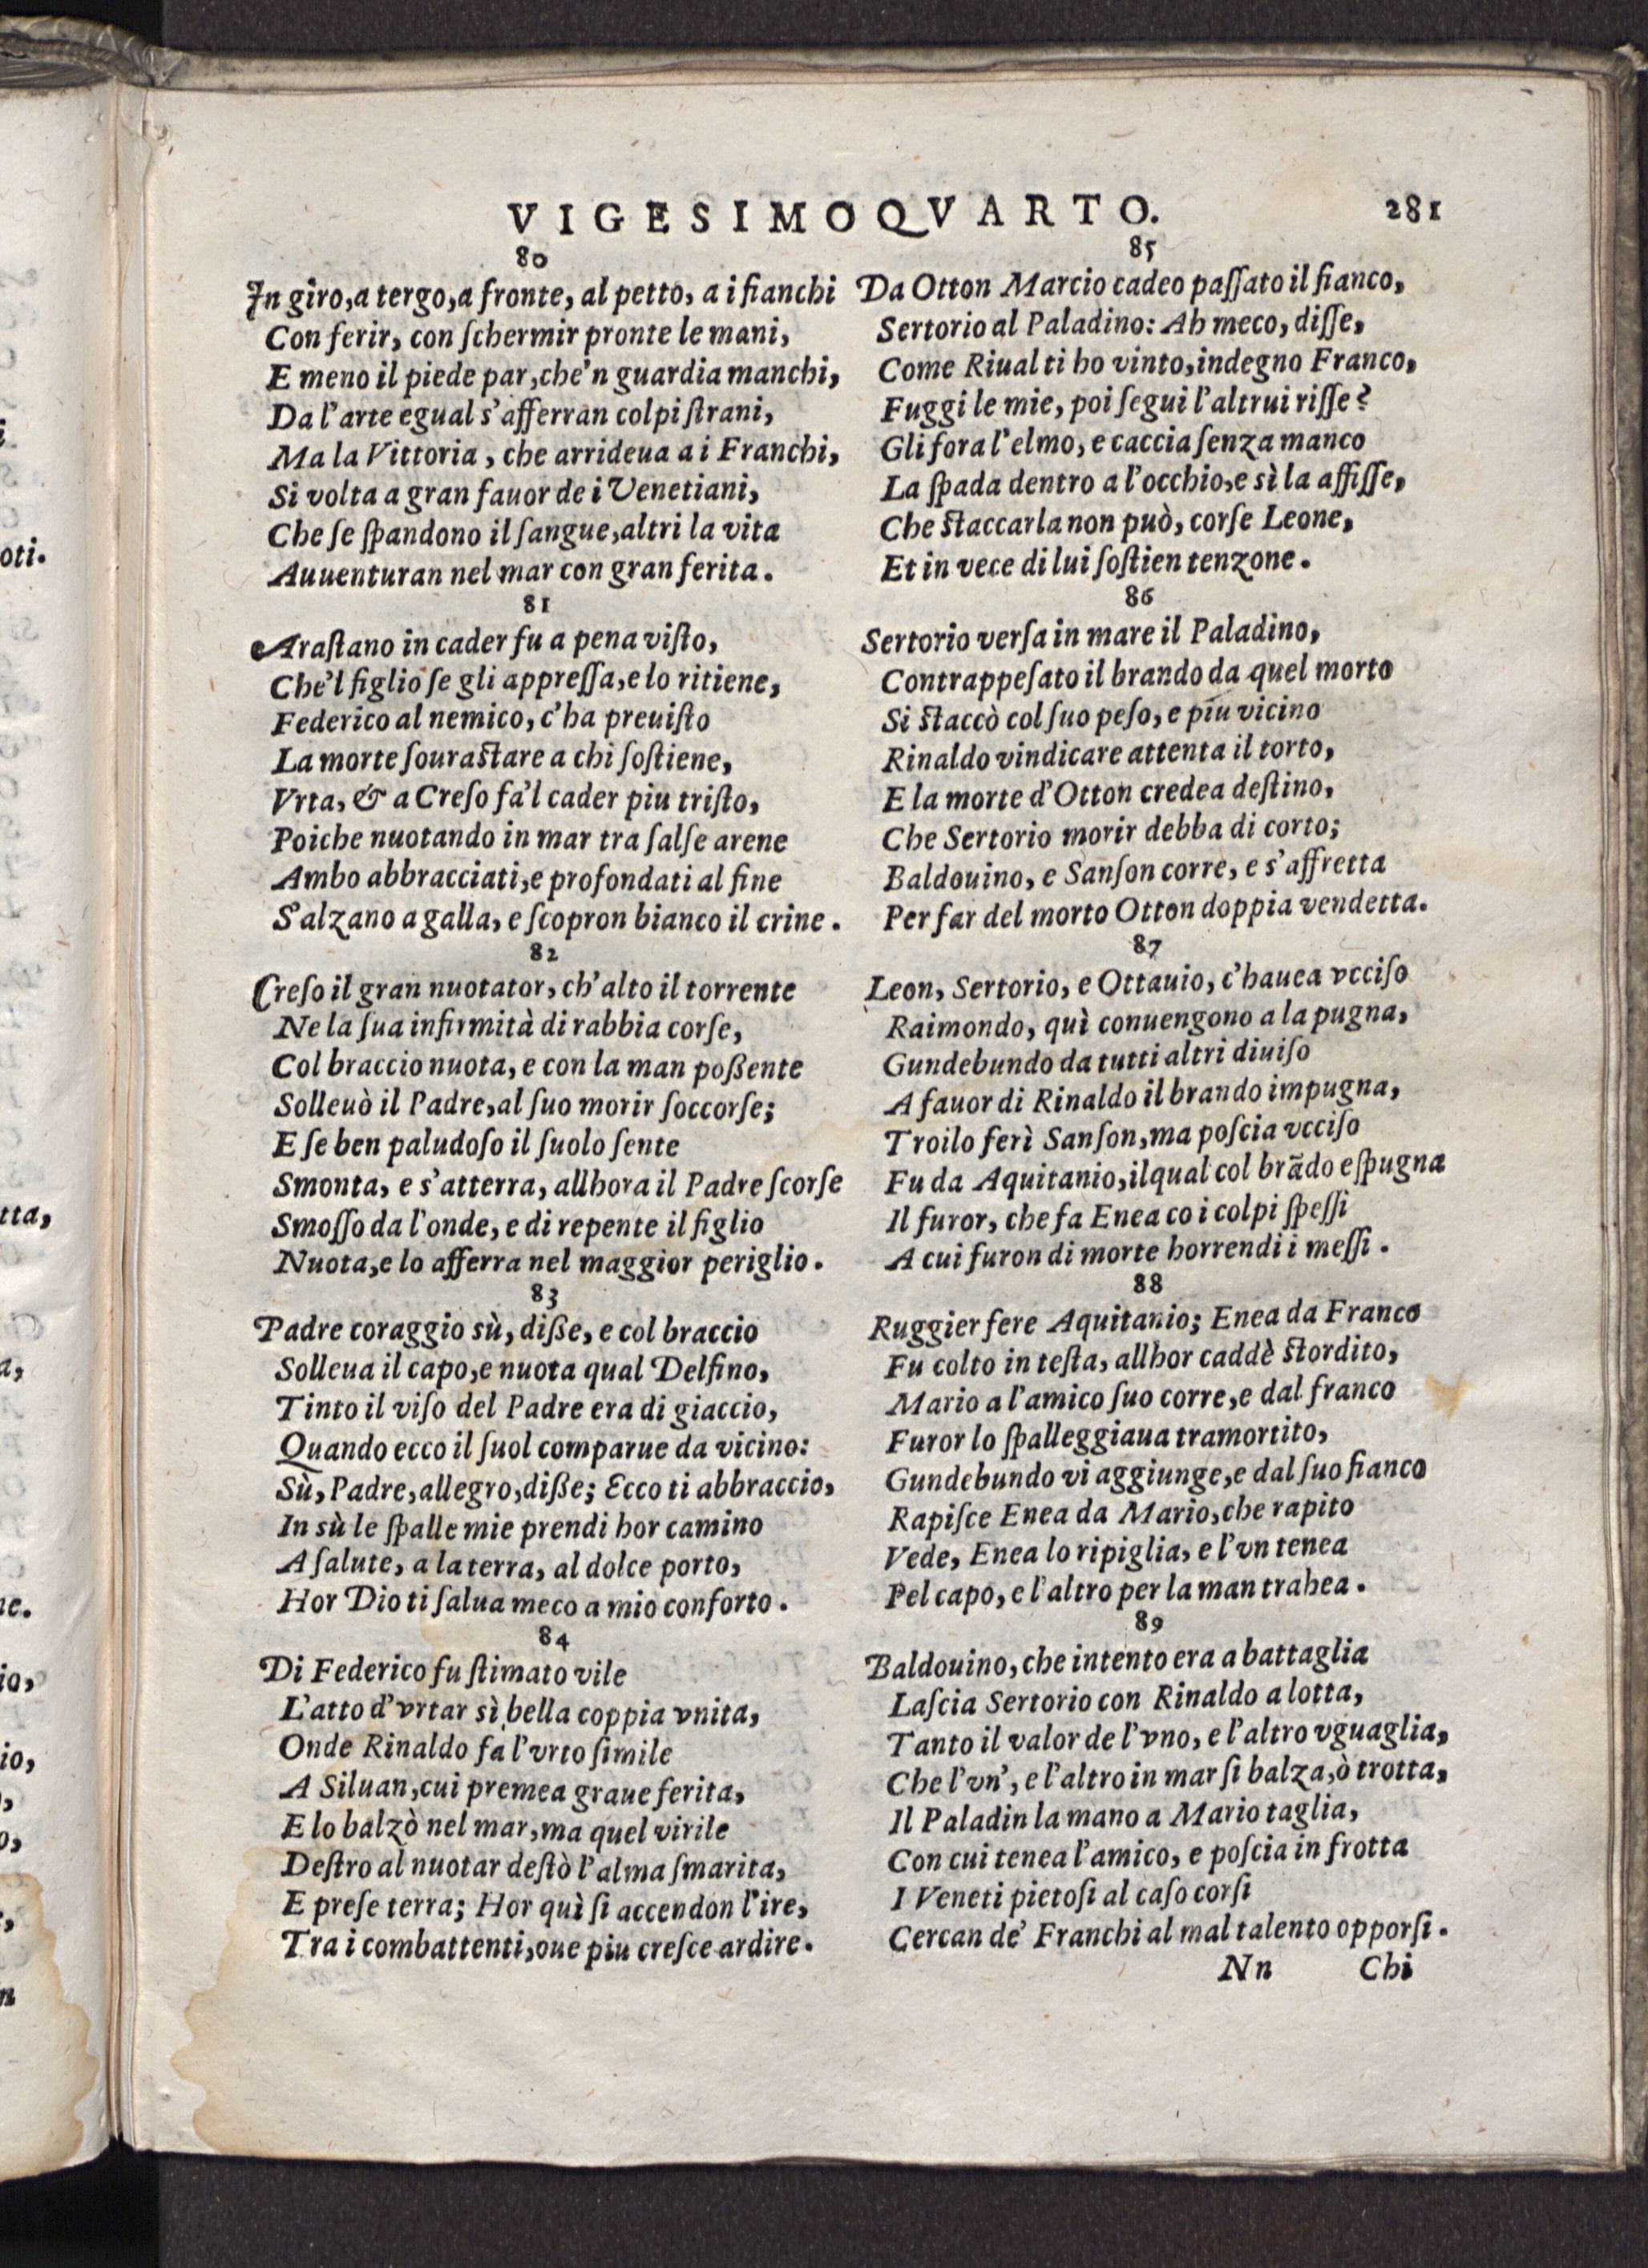 VIGESIMOQVARTO. 281
80
In giro, a tergo, a fronte, al petto, a i fianchi
Con ferir, con ſchermir pronte le mani,
E meno il piede par, che'n guardia manchi,
Da l'arte egual s'afferran colpi ſtrani,
Ma la Vittoria, che arrideua a i Franchi,
Si volta a gran fauor de i Venetiani,
Che ſe ſpandono il ſangue, altri la vita
Auuenturan nel mar con gran ferita.
81
Araſtano in cader fu a pena viſto,
Che'l figlio ſe gli appreſſa, e lo ritiene,
Federico al nemico, c'ha preuiſto
La morte ſouraſtare a chi ſoſtiene,
Vrta, & a Creſo fa'l cader piu triſto,
Poiche nuotando in mar tra ſalſe arene
Ambo abbracciati, e profondati al fine
S'alzano a galla, e ſcopron bianco il crine.
82
Creſo il gran nuotator, ch'alto il torrente
Ne la ſua infirmità di rabbia corſe,
Col braccio nuota, e con la man poßente
Solleuò il Padre, al ſuo morir ſoccorſe;
E ſe ben paludoſo il ſuolo ſente
Smonta, e s'atterra, allhora il Padre ſcorſe
Smoſſo da l'onde, e di repente il figlio
Nuota, e lo afferra nel maggior periglio.
83
Padre coraggio sù, diße, e col braccio
Solleua il capo, e nuota qual Delfino,
Tinto il viſo del Padre era di giaccio,
Quando ecco il ſuol comparue da vicino:
Sù, Padre, allegro, diße; Ecco ti abbraccio,
In sù le ſpalle mie prendi hor camino
A ſalute, a la terra, al dolce porto,
Hor Dio ti ſalua meco a mio conforto.
84
Di Federico fu ſtimato vile
L'atto d'vrtar sì bella coppia vnita,
Onde Rinaldo fa l'vrto ſimile
A Siluan, cui premea graue ferita,
E lo balzò nel mar, ma quel virile
Deſtro al nuotar deſtò l'alma ſmarita,
E preſe terra; Hor quì ſi accendon l'ire,
Tra i combattenti, oue piu creſce ardire.
85
Da Otton Marcio cadeo paſſato il fianco,
Sertorio al Paladino: Ah meco, diſſe,
Come Riual ti ho vinto, indegno Franco,
Fuggi le mie, poi ſegui l'altrui riſſe?
Gli fora l'elmo, e caccia ſenza manco
La ſpada dentro a l'occhio, e sì la affiſſe,
Che ſtaccarla non può, corſe Leone,
Et in vece di lui ſoſtien tenzone.
86
Sertorio verſa in mare il Paladino,
Contrappeſato il brando da quel morto
Si ſtaccò col ſuo peſo, e piu vicino
Rinaldo vindicare attenta il torto,
E la morte d'Otton credea deſtino,
Che Sertorio morir debba di corto;
Baldouino, e Sanſon corre, e s'affretta
Per far del morto Otton doppia vendetta.
87
Leon, Sertorio, e Ottauio, c'hauea vcciſo
Raimondo, quì conuengono a la pugna,
Gundebundo da tutti altri diuiſo
A fauor di Rinaldo il brando impugna,
Troilo ferì Sanſon, ma poſcia vcciſo
Fu da Aquitanio, ilqual col brãdo eſpugna
Il furor, che fa Enea co i colpi ſpeſſi
A cui furon di morte horrendi i meſſi.
88
Ruggier fere Aquitanio; Enea da Franco
Fu colto in teſta, allhor caddè ſtordito,
Mario a l'amico ſuo corre, e dal franco
Furor lo ſpalleggiaua tramortito,
Gundebundo vi aggiunge, e dal ſuo fianco
Rapiſce Enea da Mario, che rapito
Vede, Enea lo ripiglia, e l'vn tenea
Pel capo, e l'altro per la man trahea.
89
Baldouino, che intento era a battaglia
Laſcia Sertorio con Rinaldo a lotta,
Tanto il valor de l'vno, e l'altro vguaglia,
Che l'vn', e l'altro in mar ſi balza, ò trotta,
Il Paladin la mano a Mario taglia,
Con cui tenea l'amico, e poſcia in frotta
I Veneti pietoſi al caſo corſi
Cercan de' Franchi al mal talento opporſi.
Nn Chi